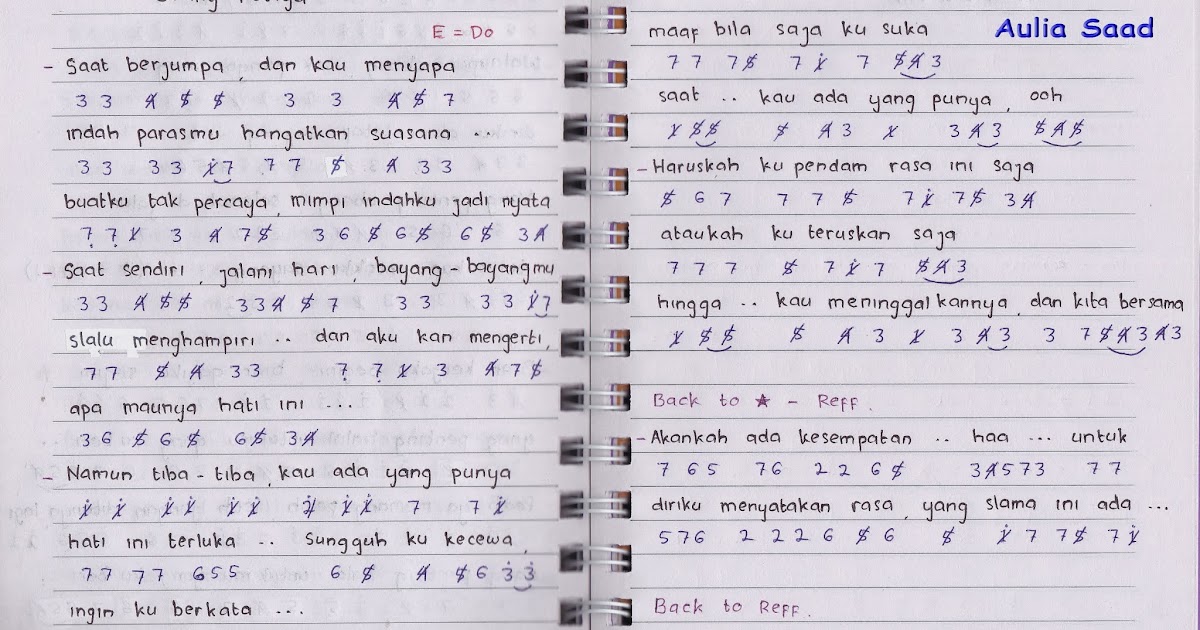 E = Do
- Saat berjumpa, dan kau menyapa
3 3 4̸ 5̸ 5̸ 3 3 4̸ 5̸ 7
indah parasmu hangatkan suasana ...
3 3 3 3 1̸̇ 7 7 7 5̸ 4̸ 3 3
buatku tak percaya, mimpi indahku jadi nyata
7̣ 7̣ 1̸ 3 4̸ 7 5̸ 3 6 5̸ 6 5̸ 6 5̸ 3 4̸
- Saat sendiri, jalani hari, bayang-bayangmu
3 3 4̸ 5̸ 5̸ 3 3 4̸ 5̸ 7 3 3 3 3 1̸̇ 7
slalu menghampiri .. dan aku kan mengerti,
7 7 5̸ 4̸ 3 3 7̣ 7̣ 1̸ 3 4̸ 7 5̸
apa maunya hati ini ...
3 6 5̸ 6 5̸ 6 5̸ 3 4̸
- Namun tiba-tiba, kau ada yang punya
1̸̇ 1̸̇ 1̸̇ 1̸̇ 1̸̇ 1̸̇ 2̸̇ 1̸̇ 1̸̇ 7 7 1̸̇
hati ini terluka .. Sungguh ku kecewa,
7 7 7 7 6 5 5 6 5̸ 4̸ 5̸ 6 3̇ 3̇
ingin ku berkata ...
Aulia Saad
maaf bila saja ku suka
7 7 7 5̸ 7 1̸̇ 7 5̸ 4̸ 3
saat .. kau ada yang punya, ooh
1̸ 5̸ 5̸ 5̸ 4̸ 3 1̸ 3 4̸ 3 5̸ 4̸ 5̸
- Haruskah ku pendam rasa ini saja
5̸ 6 7 7 7 5̸ 7 1̸̇ 7 5̸ 3 4̸
ataukah ku teruskan saja
7 7 7 5̸ 7 1̸̇ 7 5̸ 4̸ 3
hingga .. kau meninggalkannya, dan kita bersama
1̸ 5̸ 5̸ 5̸ 4̸ 3 1̸ 3 4̸ 3 3 7 5̸ 4̸ 3 4̸ 3
Back to ★ - Reff.
- Akankah ada kesempatan .. haa ... untuk
7 6 5 7 6 2 2 6 5̸ 3 4̸ 5 7 3 7 7
diriku menyatakan rasa, yang slama ini ada ...
5 7 6 2 2 2 6 5̸ 6 5̸ 1̸̇ 7 7 5̸ 7 1̸̇
Back to Reff.